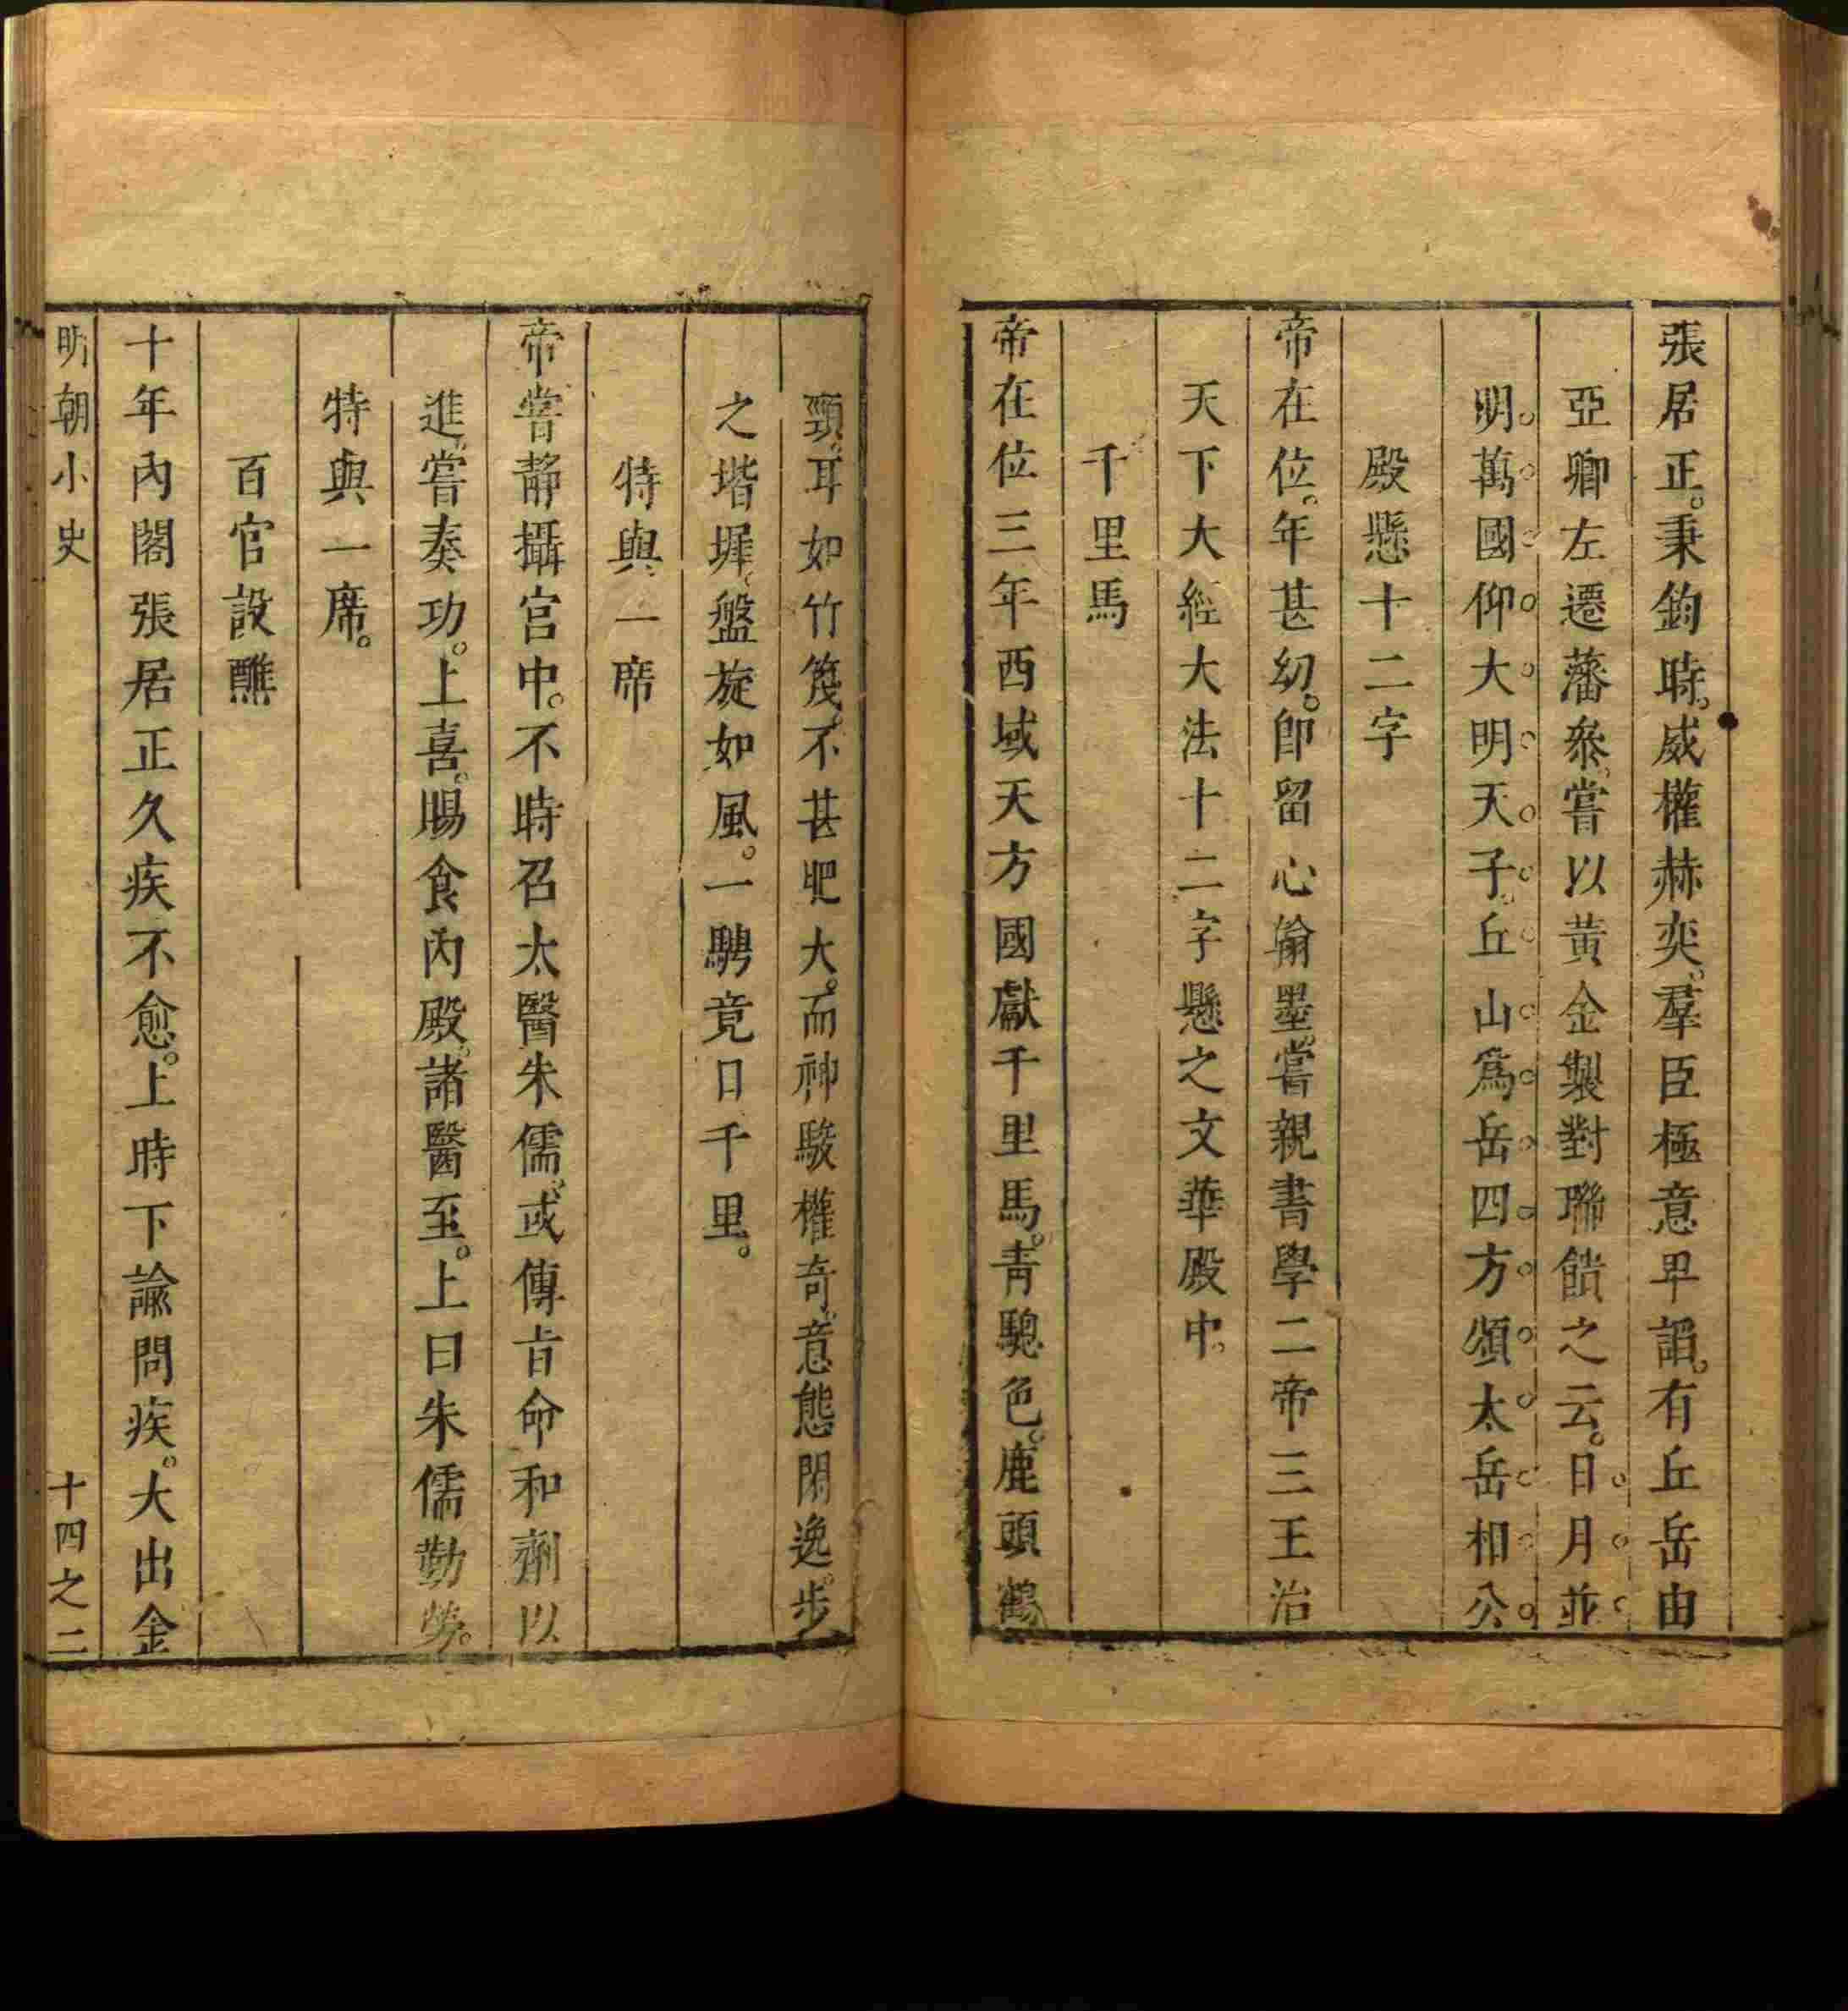 張居正。秉鈞時。威權赫奕。羣臣極意卑謟。有丘岳由
亞卿左遷藩叅。嘗以黃金製對聯餽之云。日月並
明萬國仰大明天子。丘山爲岳四方頌太岳相公
殿懸十二字
帝在位。年甚幼。卽留心翰墨。嘗親書學二帝三王治
天下大經大法十二字懸之文華殿中。
千里馬
帝在位三年西域天方國獻千里馬。靑騘色。鹿頭鶴
頸。耳如竹篾。不甚肥大。而神駿權奇。意態閑逸。步
之堦墀。盤旋如風。一騁竟日千里。
特與一席
帝嘗靜攝宮中。不時召太醫朱儒。或傳旨命和劑以
進。嘗奏功。上喜。賜食內殿。諸醫至。上曰朱儒勤勞。
特與一席。
百官設醮
十年內閣張居正久疾不愈。上時下諭問疾。大出金
明朝小史 十四之二